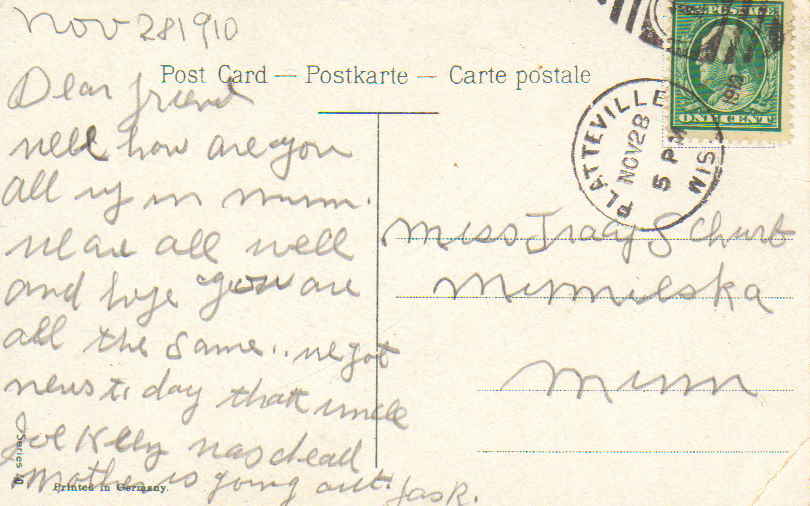 Nov 28 1910
Post Card — Postkarte — Carte postale
Dear friend
well how are you
all up in Minn.
We are all well
and hope you are
all the same.. we got
news to day that uncle
Joe Kelly was dead
Mother is going out. Jas R.
Series 40
Printed in Germany.
U.S. POSTAGE
ONE CENT
1910
PLATTEVILLE
NOV 28
5 PM
WIS.
Miss Tracy Schurb
Minneiska
Minn